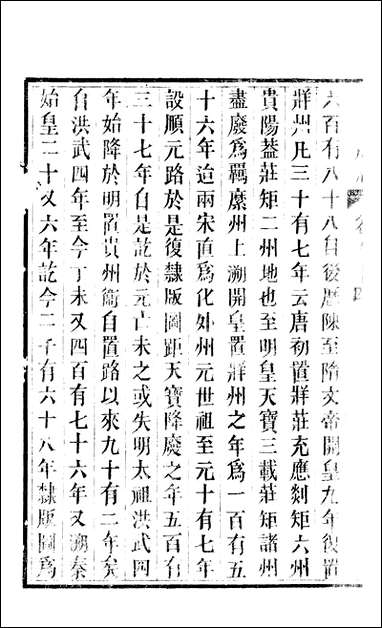 六百有八十八自後歷陳至隋文帝開皇九年復置
牂州凡三十有七年云唐初置牂莊充應剡矩六州
貴陽葢莊矩二州地也至明皇天寶三載莊矩諸州
盡廢爲羈縻州上溯開皇置牂州之年爲一百有五
十六年迨兩宋直爲化外州元世祖至元十有七年
設順元路於是復隸版圖距天寶降廢之年五百有
三十七年自是訖於元亡未之或失明太祖洪武四
年始降於明置貴州衞自置路以來九十有二年矣
自洪武四年至今丁未又四百有七十六年又溯秦
始皇二十又六年訖今二千有六十八年隸版圖爲